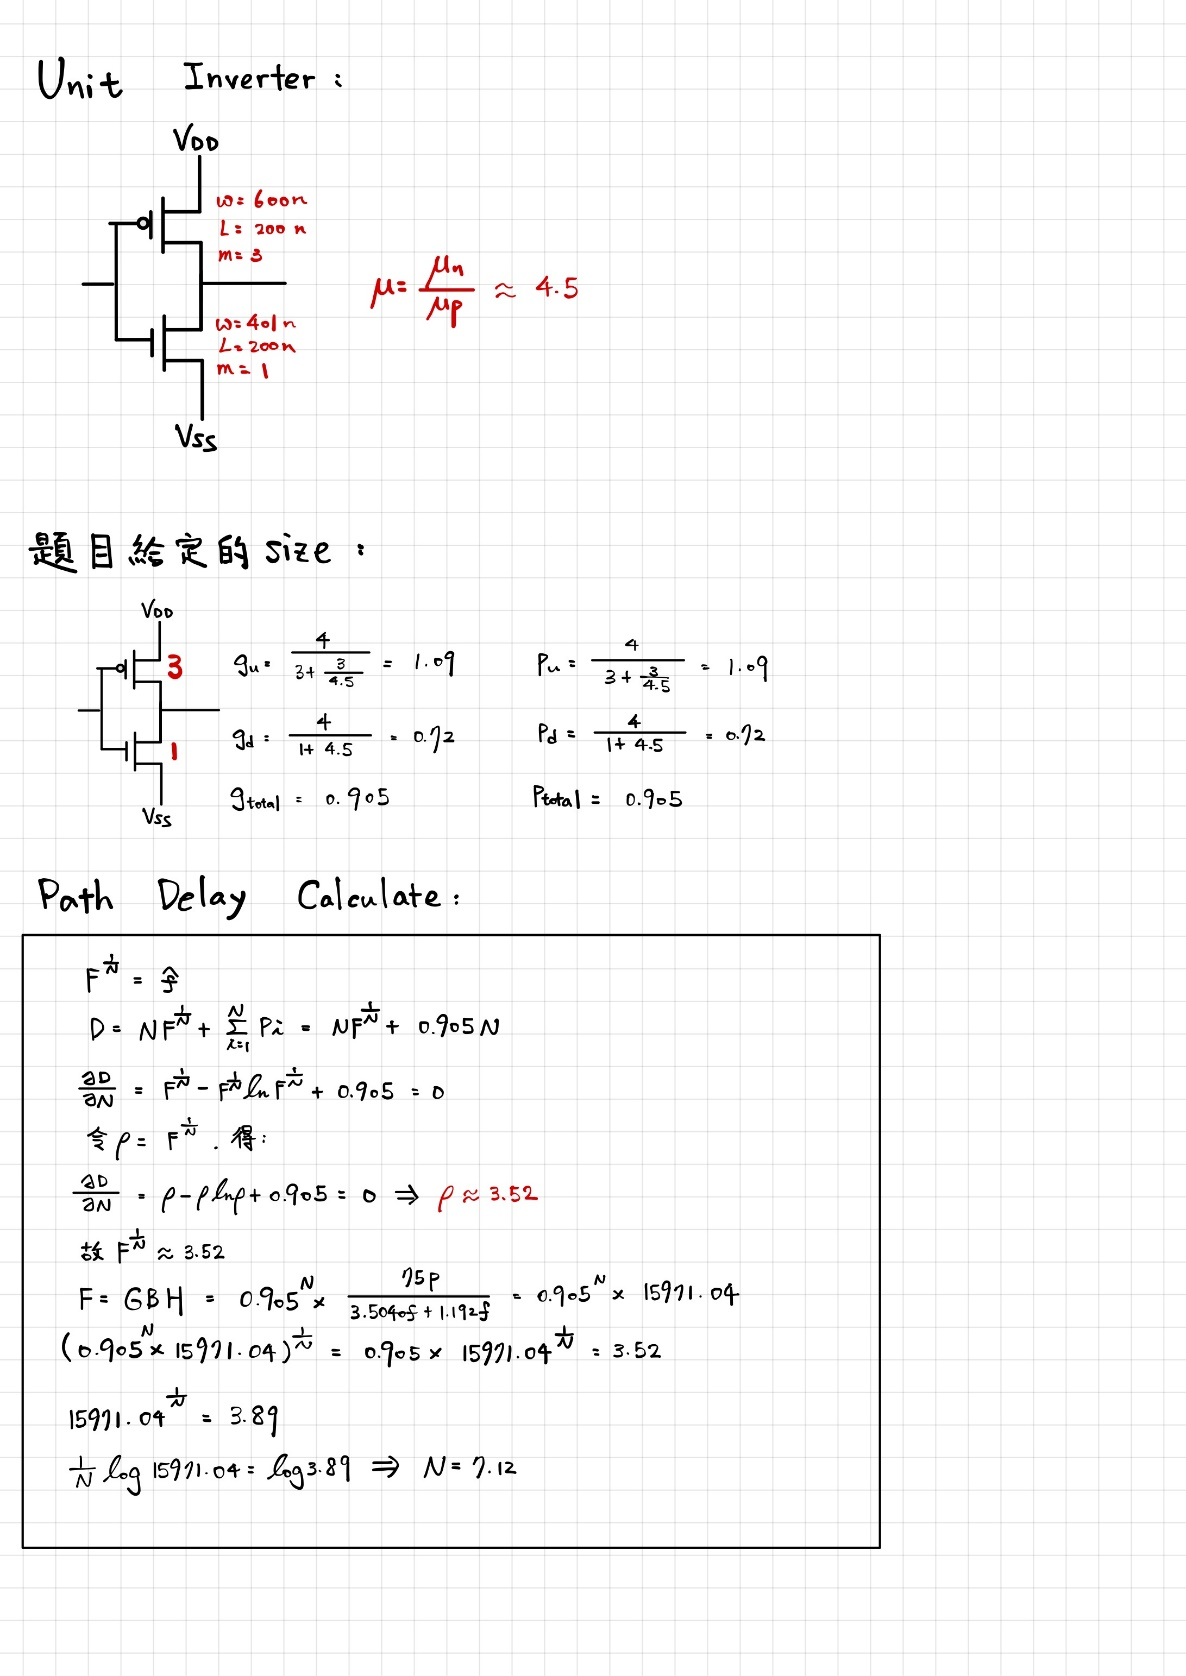 Unit Inverter:
VDD
W= 600n
L= 200 n
m= 3
μ= μn/μp ≈ 4.5
W=401n
L=200n
m= 1
VSS
題目給定的 size :
VDD
3
gu= 4/(3+ 3/4.5) = 1.09
Pu= 4/(3+ 3/4.5) = 1.09
gd= 4/(1+ 4.5) = 0.72
Pd= 4/(1+ 4.5) = 0.72
1
gtotal = 0.905
Ptotal = 0.905
VSS
Path Delay Calculate:
F^(1/N) = f̂
D= NF^(1/N) + Σ_(i=1)^N Pi = NF^(1/N) + 0.905N
∂D/∂N = F^(1/N) - F^(1/N) ln F^(1/N) + 0.905 = 0
令 ρ= F^(1/N) . 得:
∂D/∂N = ρ-ρlnρ+0.905= 0 ⇒ ρ≈ 3.52
故 F^(1/N) ≈ 3.52
F= GBH = 0.905^N × 75p/(3.5040f + 1.192f) = 0.905^N × 15971.04
(0.905^N × 15971.04)^(1/N) = 0.905 × 15971.04^(1/N) = 3.52
15971.04^(1/N) = 3.89
1/N log 15971.04= log3.89 ⇒ N= 7.12